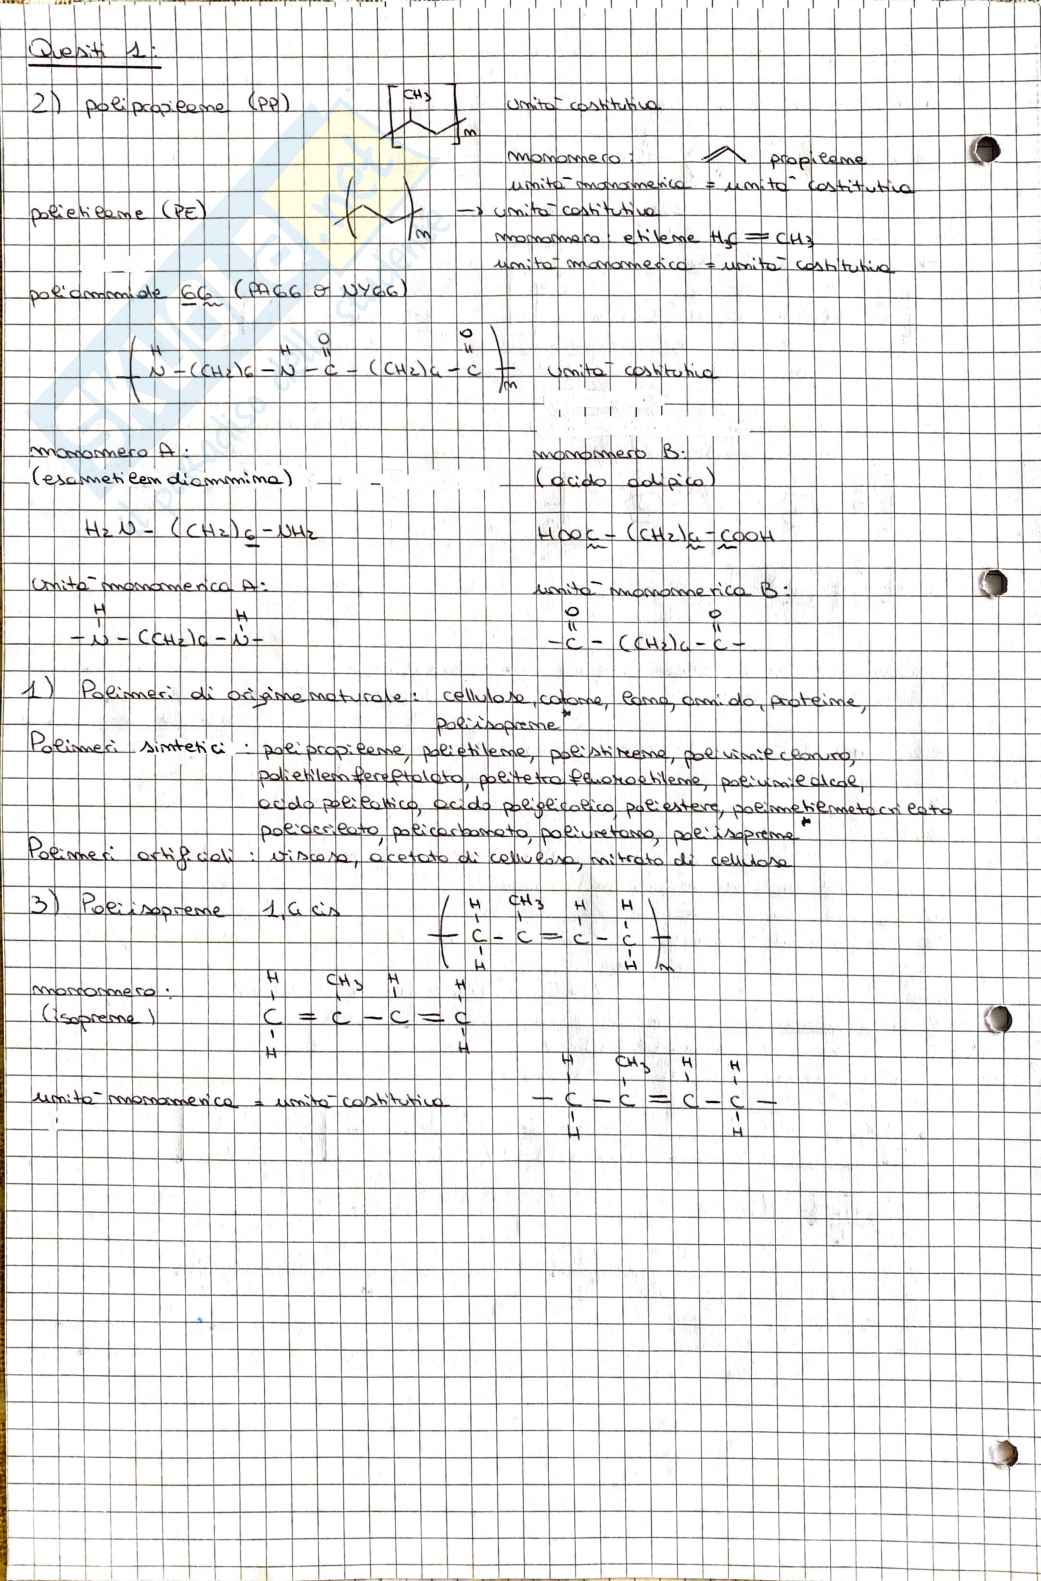 Quesiti 1:
2) polipropilene (PP) [CH3]n unità costitutiva
monomero: propilene
unità monomerica = unità costitutiva
polietilene (PE) ( )n → unità costitutiva
monomero: etilene H2C=CH3
unità monomerica = unità costitutiva
poliammide 66 (PA66 o NY66)
(-N-(CH2)6-N-C-(CH2)4-C-)n unità costitutiva
H H O O
monomero A: monomero B:
(esametilendiammina) (acido adipico)
H2N-(CH2)6-NH2 HOOC-(CH2)4-COOH
unità monomerica A: unità monomerica B:
H H O O
-N-(CH2)6-N- -C-(CH2)4-C-
1) Polimeri di origine naturale: cellulosa, cotone, lana, amido, proteine,
poliisoprene*
Polimeri sintetici: polipropilene, polietilene, polistirene, polivinilcloruro,
polietilentereftalato, politetrafluoroetilene, polivinilalcol,
acido polilattico, acido poliglicolico, poliestere, polimetilmetacrilato
poliacrilato, policarbonato, poliuretano, poliisoprene*
Polimeri artificiali: viscosa, acetato di cellulosa, nitrato di cellulosa
3) Poliisoprene 1,4 cis
H CH3 H H
(-C-C=C-C-)n
H H
monomero:
(isoprene)
H CH3 H H
C=C-C=C
H H
unità monomerica = unità costitutiva
H CH3 H H
-C-C=C-C-
H H